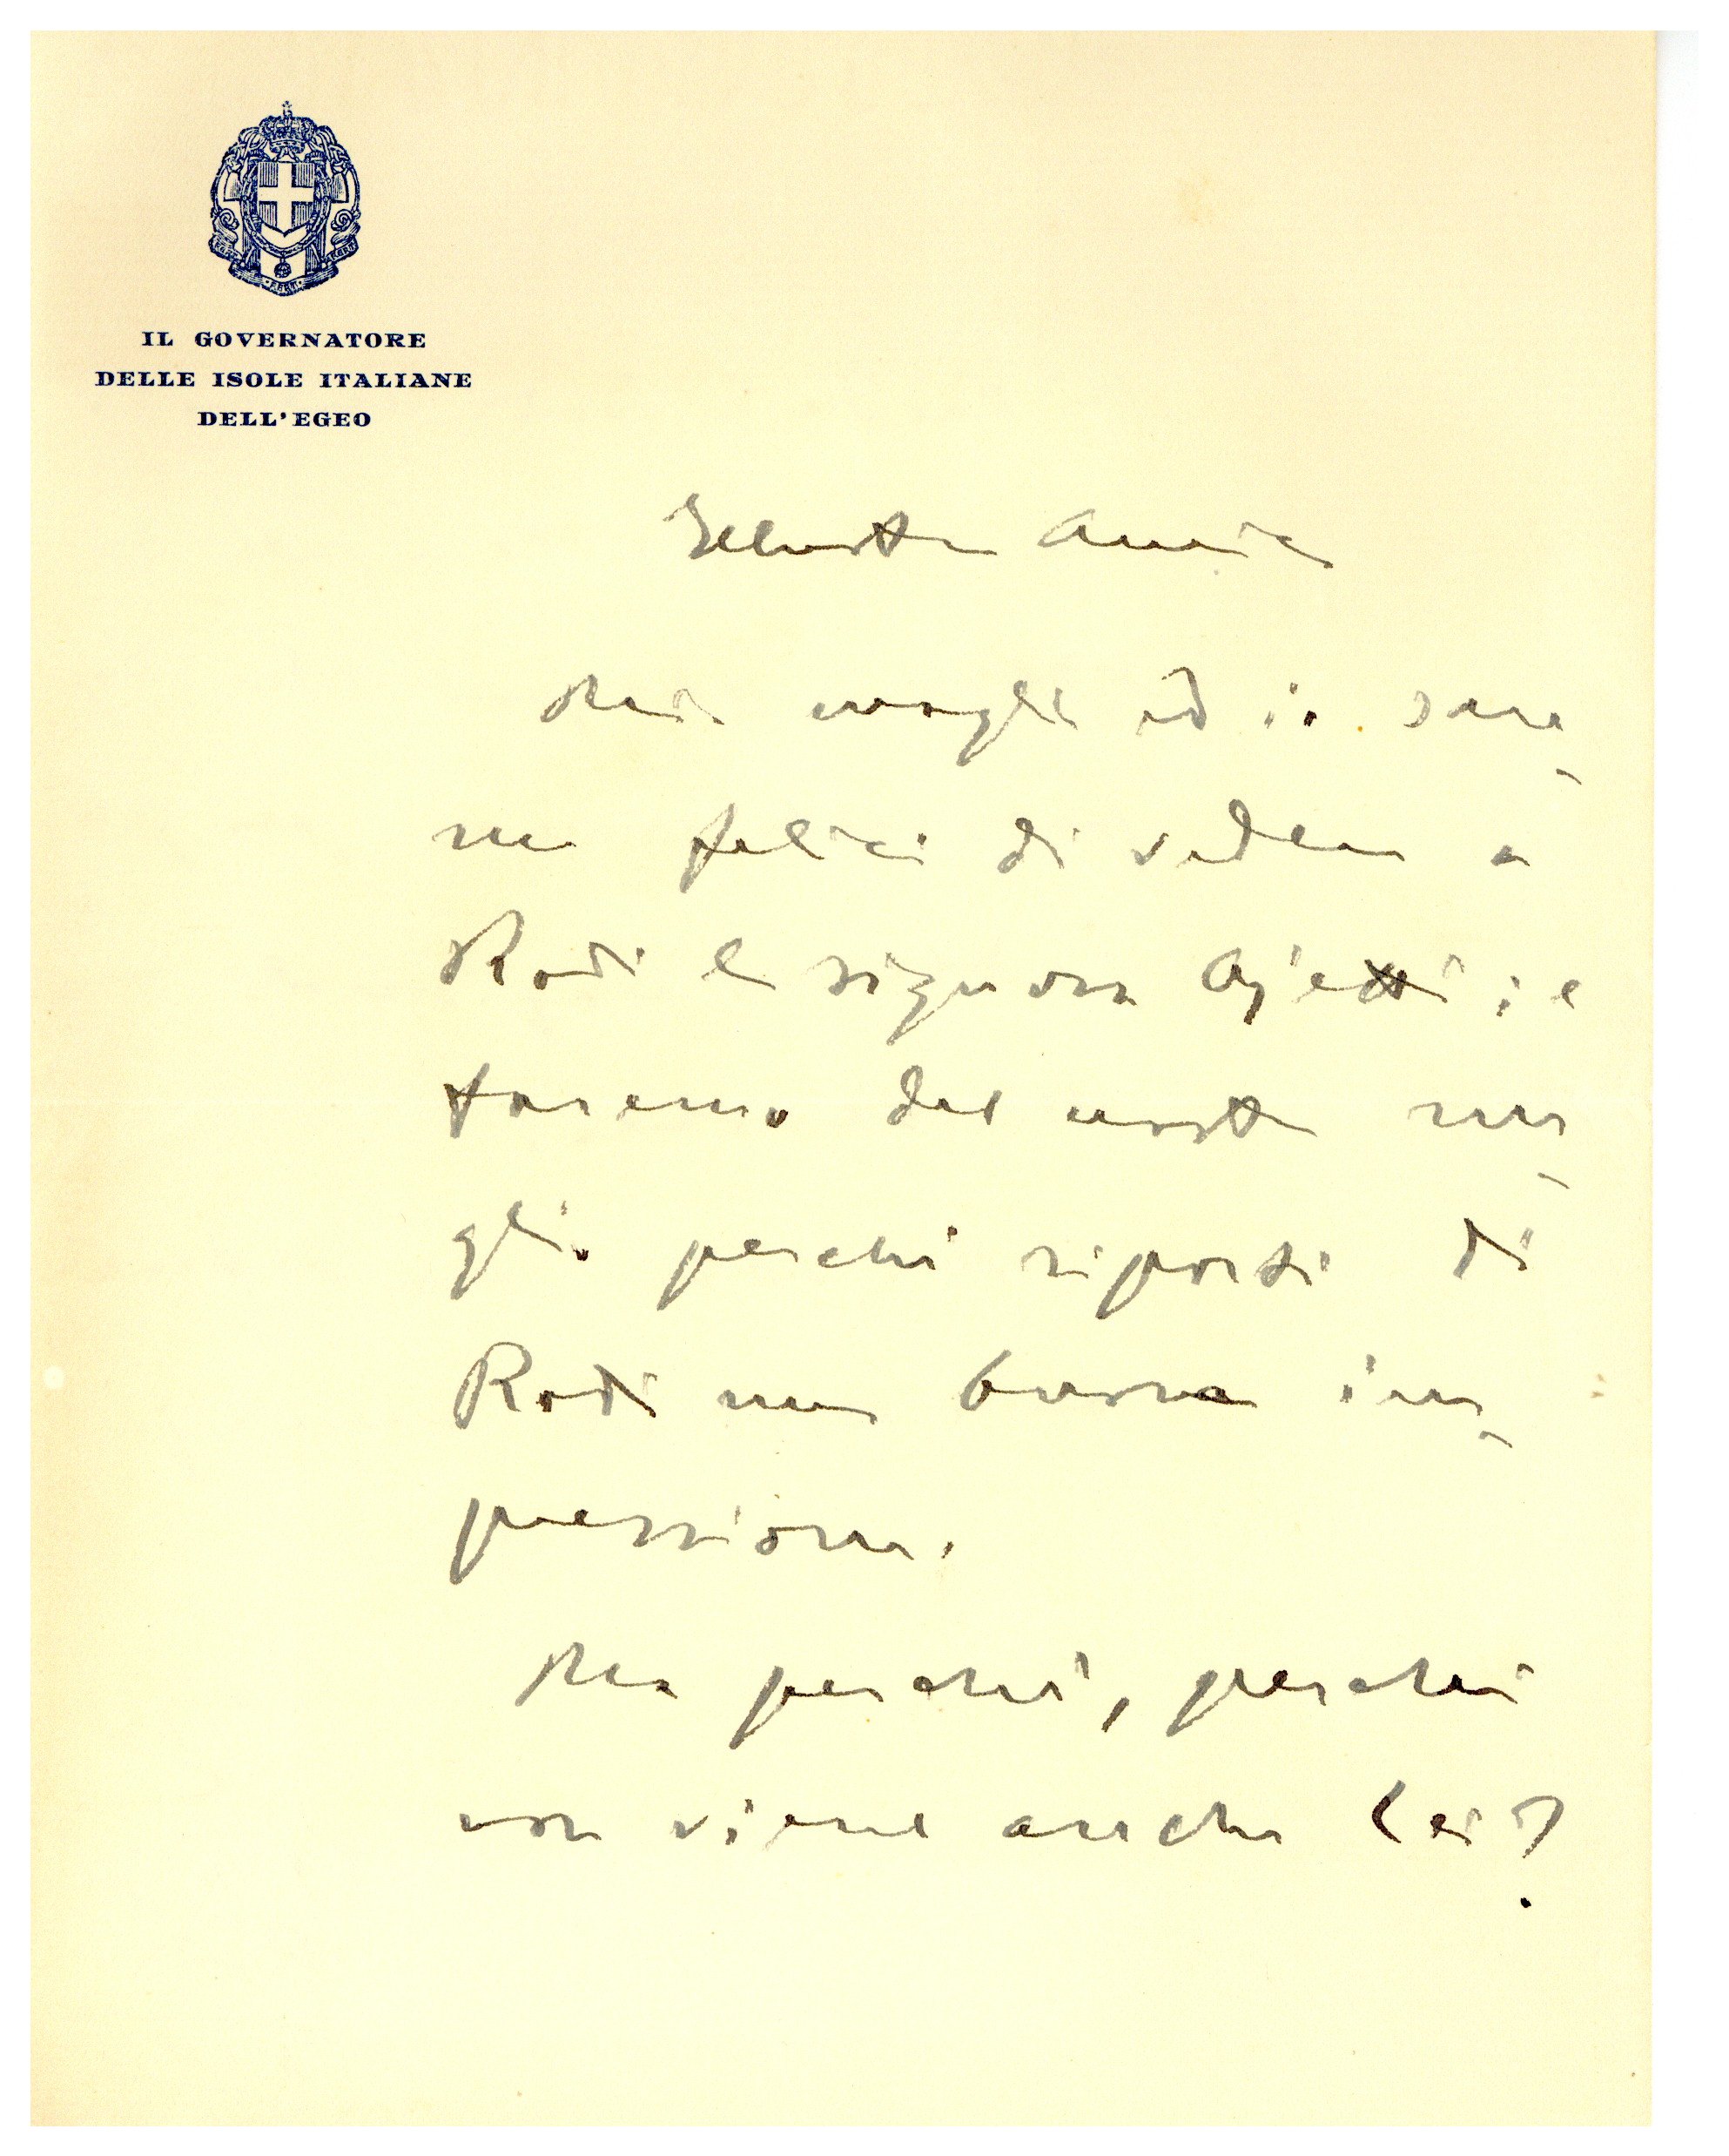 IL GOVERNATORE
DELLE ISOLE ITALIANE
DELL'EGEO
Illustre Amico
Mia moglie ed io sare-
mo felici di vedere a
Rodi la signora Ojetti; e
faremo del nostro me-
glio perchè riporti di
Rodi una buona im-
pressione.
Ma perchè, perchè
non viene anche lei?